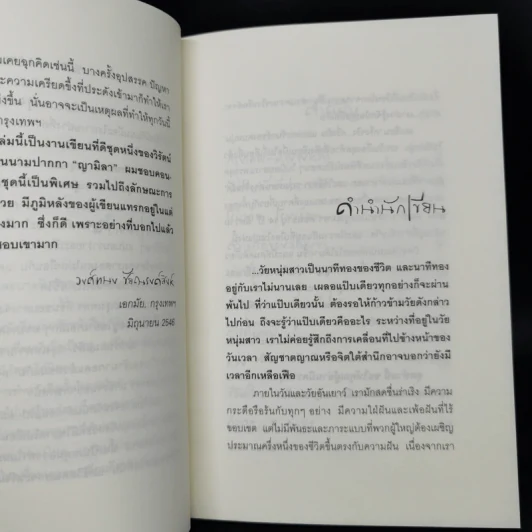 มเคยฉุกคิดเช่นนี้ บางครั้งอุปสรรค ปัญหา
ะความเครียดขึ้งที่ประดังเข้ามาก็ทำให้เรา
ขึ้น นั่นอาจจะเป็นเหตุผลที่ทำให้ทุกวันนี้
กรุงเทพฯ
ล่มนี้เป็นงานเขียนที่ดีชุดหนึ่งของวิรัตน์
นนามปากกา "ญามิลา" ผมชอบคอน-
ชุดนี้เป็นพิเศษ รวมไปถึงลักษณะการ
วย มีภูมิหลังของผู้เขียนแทรกอยู่ในแต่
งมาก ซึ่งก็ดี เพราะอย่างที่บอกไปแล้ว
ชอบเขามาก
เอกมัย, กรุงเทพฯ
มิถุนายน 2546
คำนำนักเขียน
...วัยหนุ่มสาวเป็นนาทีทองของชีวิต และนาทีทอง
อยู่กับเราไม่นานเลย เผลอแป๊บเดียวทุกอย่างก็จะผ่าน
พ้นไป ที่ว่าแป๊บเดียวนั้น ต้องรอให้ก้าวข้ามวัยดังกล่าว
ไปก่อน ถึงจะรู้ว่าแป๊บเดียวคืออะไร ระหว่างที่อยู่ในวัย
หนุ่มสาว เราไม่ค่อยรู้สึกถึงการเคลื่อนที่ไปข้างหน้าของ
วันเวลา สัญชาตญาณหรือจิตใต้สำนึกอาจบอกว่ายังมี
เวลาอีกเหลือเฟือ
ภายในวันและวัยอันเยาว์ เรามักสดชื่นร่าเริง มีความ
กระตือรือร้นกับทุกๆ อย่าง มีความใฝ่ฝันและเพ้อฝันที่ไร้
ขอบเขต แต่ไม่มีพันธะและภาระแบบที่พวกผู้ใหญ่ต้องเผชิญ
ประมาณครึ่งหนึ่งของชีวิตขึ้นตรงกับความฝัน เนื่องจากเรา